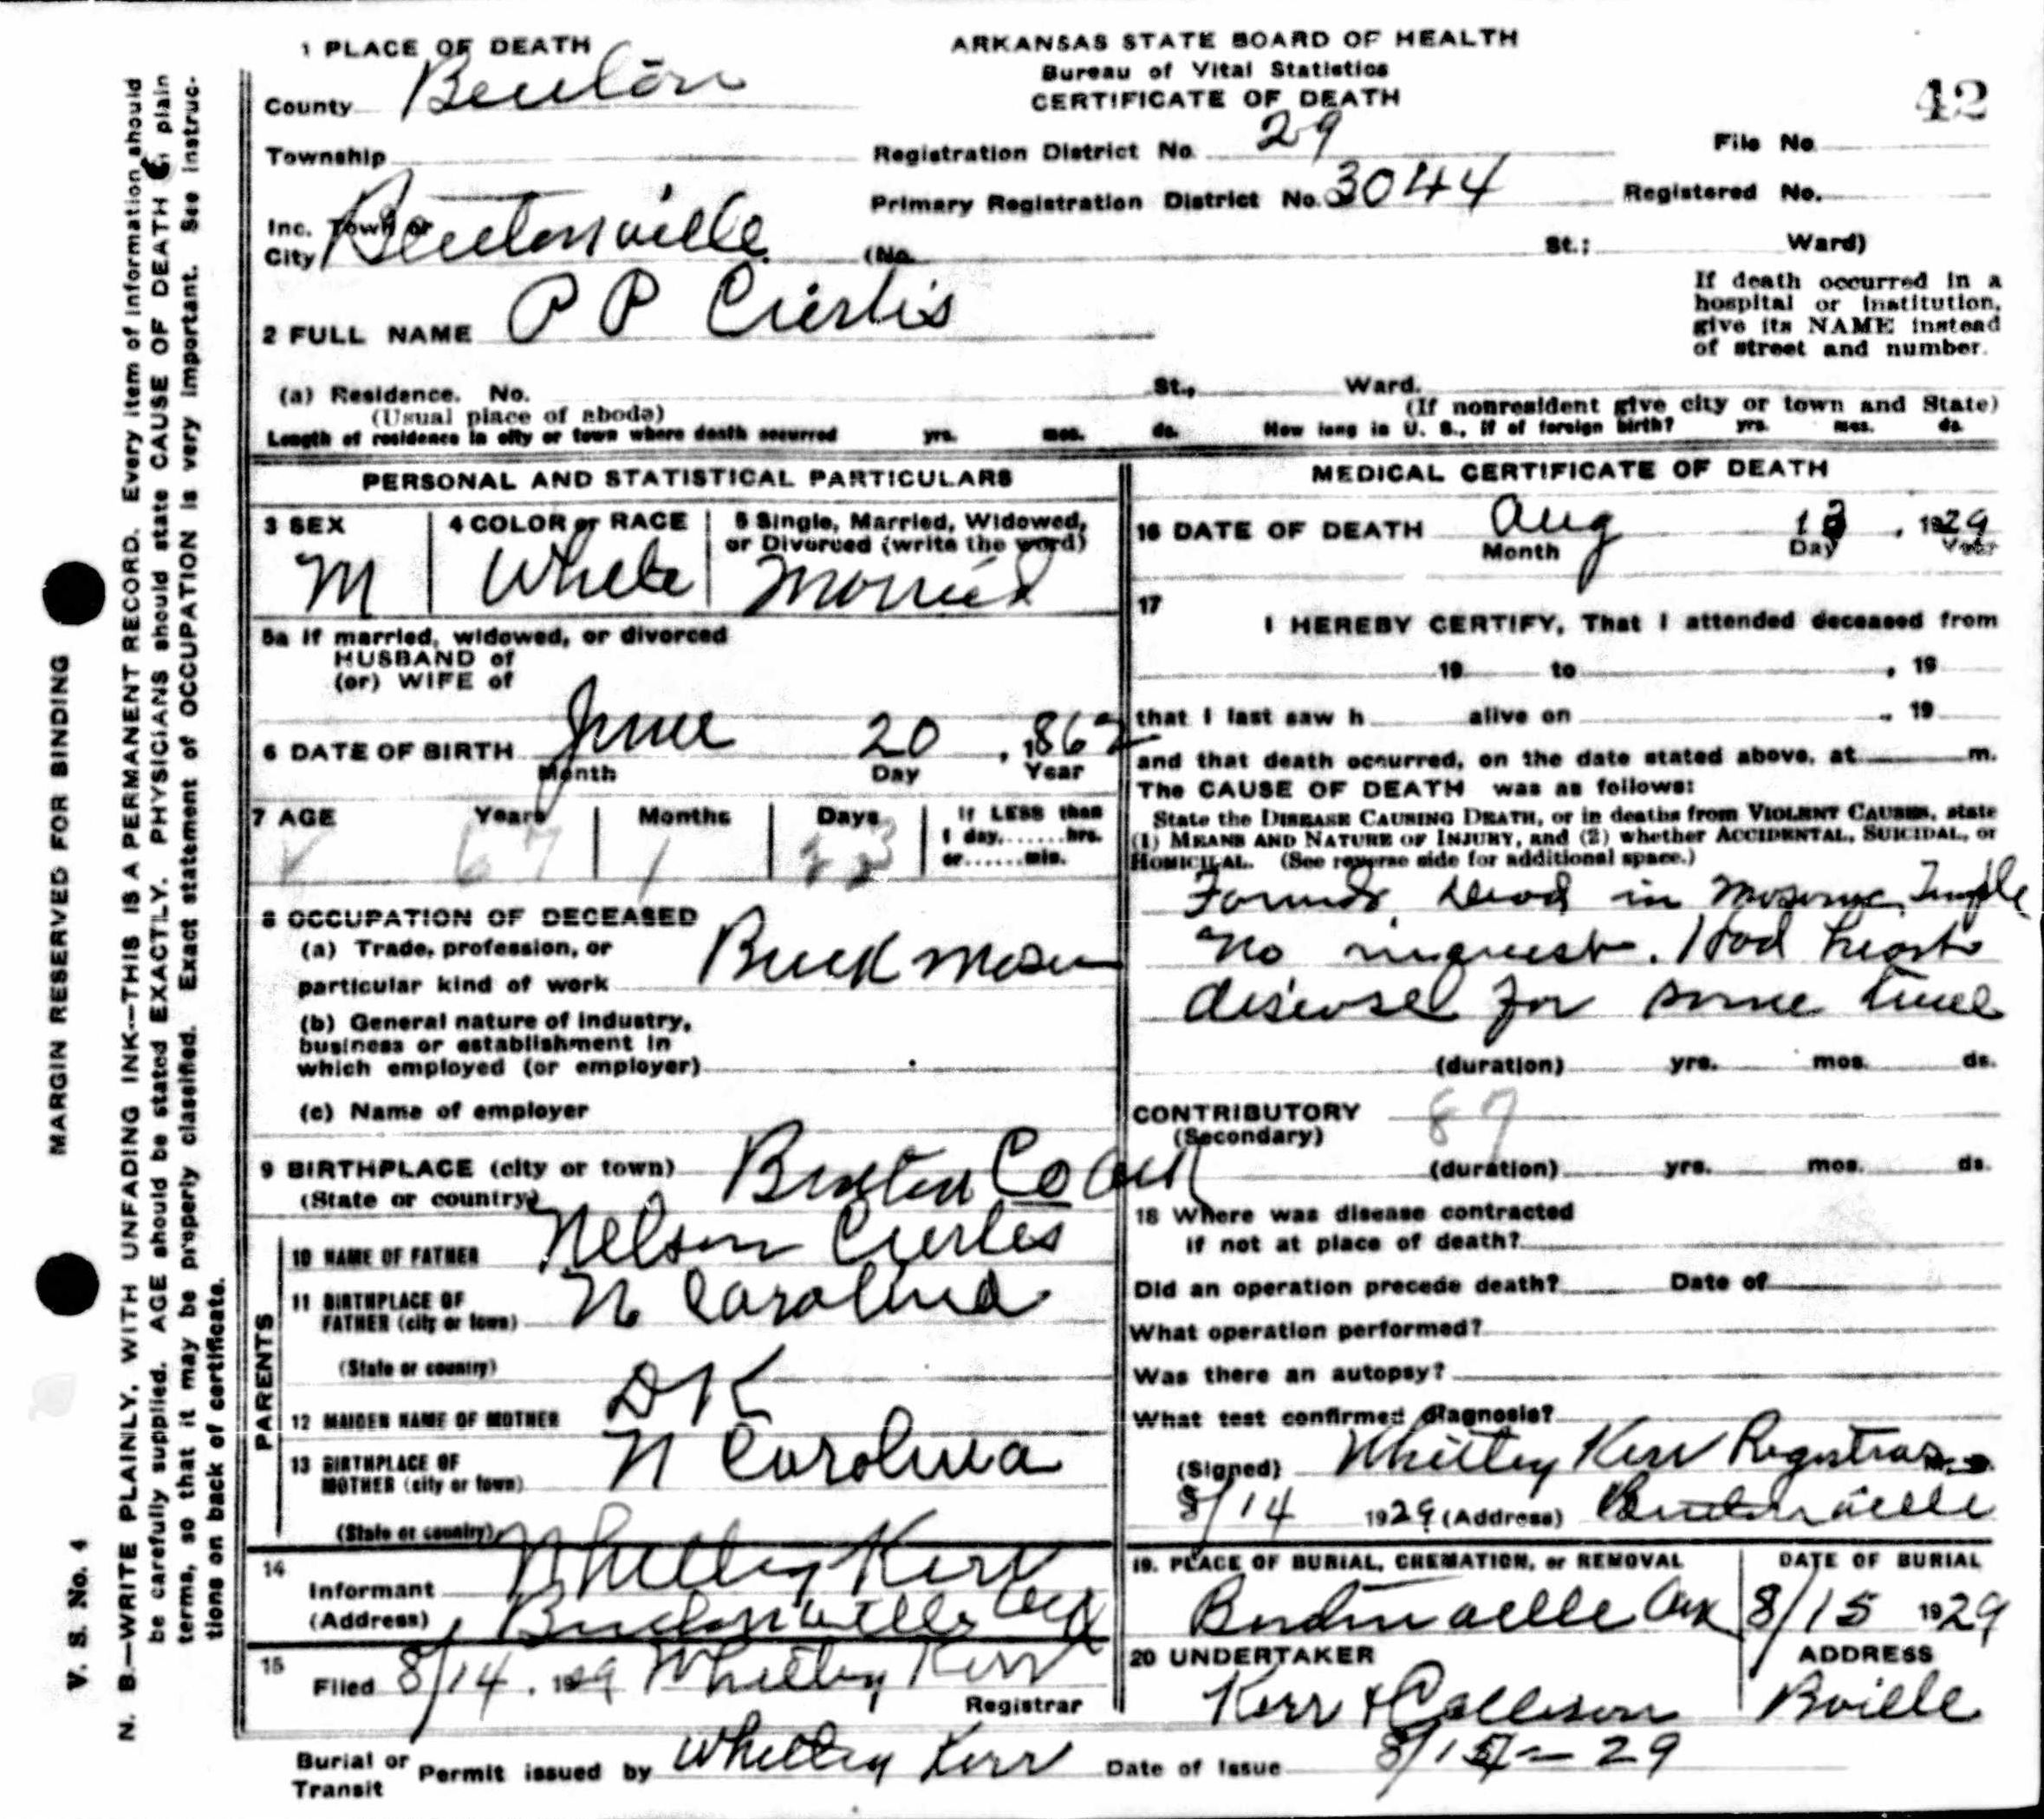 1 PLACE OF DEATH
County Benton
Township
Inc. Town or
City Bentonville (No. St.; Ward)
ARKANSAS STATE BOARD OF HEALTH
Bureau of Vital Statistics
CERTIFICATE OF DEATH
42
Registration District No. 29 File No.
Primary Registration District No. 3044 Registered No.
2 FULL NAME P P Curtis
If death occurred in a
hospital or institution,
give its NAME instead
of street and number.
(a) Residence. No. St., Ward.
(Usual place of abode) (If nonresident give city or town and State)
Length of residence in city or town where death occurred yrs. mos. ds. How long in U. S., if of foreign birth? yrs. mos. ds.
PERSONAL AND STATISTICAL PARTICULARS
3 SEX
M
4 COLOR or RACE
White
5 Single, Married, Widowed,
or Divorced (write the word)
Married
5a If married, widowed, or divorced
HUSBAND of
(or) WIFE of
6 DATE OF BIRTH June 20, 1862
Month Day Year
7 AGE Years Months Days If LESS than
1 day,......hrs.
or......min.
67 1 23
8 OCCUPATION OF DECEASED
(a) Trade, profession, or
particular kind of work Brick Mason
(b) General nature of industry,
business or establishment in
which employed (or employer)
(c) Name of employer
9 BIRTHPLACE (city or town) Benton Co Ark
(State or country)
PARENTS
10 NAME OF FATHER Nelson Curtis
11 BIRTHPLACE OF
FATHER (city or town) N Carolina
(State or country)
12 MAIDEN NAME OF MOTHER DK
13 BIRTHPLACE OF
MOTHER (city or town) N Carolina
(State or country)
14
Informant Whitley Kerr
(Address) Bentonville Ark
15
Filed 8/14, 1929 Whitley Kerr
Registrar
MEDICAL CERTIFICATE OF DEATH
16 DATE OF DEATH Aug 13, 1929
Month Day Year
17
I HEREBY CERTIFY, That I attended deceased from
19 to , 19
that I last saw h alive on , 19
and that death occurred, on the date stated above, at m.
The CAUSE OF DEATH was as follows:
State the DISEASE CAUSING DEATH, or in deaths from VIOLENT CAUSES, state
(1) MEANS AND NATURE OF INJURY, and (2) whether ACCIDENTAL, SUICIDAL, or
HOMICIDAL. (See reverse side for additional space.)
Found Dead in Masonic Temple
No inquest. Had heart
disease for some time
(duration) yrs. mos. ds.
CONTRIBUTORY 87
(Secondary)
(duration) yrs. mos. ds.
18 Where was disease contracted
if not at place of death?
Did an operation precede death? Date of
What operation performed?
Was there an autopsy?
What test confirmed diagnosis?
(Signed) Whitley Kerr Registrar
8/14 1929 (Address) Bentonville
19. PLACE OF BURIAL, CREMATION, or REMOVAL DATE OF BURIAL
Bentonville Ark 8/15 1929
20 UNDERTAKER ADDRESS
Kerr & Callison Bville
Burial or
Transit Permit issued by Whitley Kerr Date of Issue 8/15-29
MARGIN RESERVED FOR BINDING
V. S. No. 4
N. B.—WRITE PLAINLY, WITH UNFADING INK---THIS IS A PERMANENT RECORD. Every item of information should
be carefully supplied. AGE should be stated EXACTLY. PHYSICIANS should state CAUSE OF DEATH in plain
terms, so that it may be properly classified. Exact statement of OCCUPATION is very important. See instruc-
tions on back of certificate.